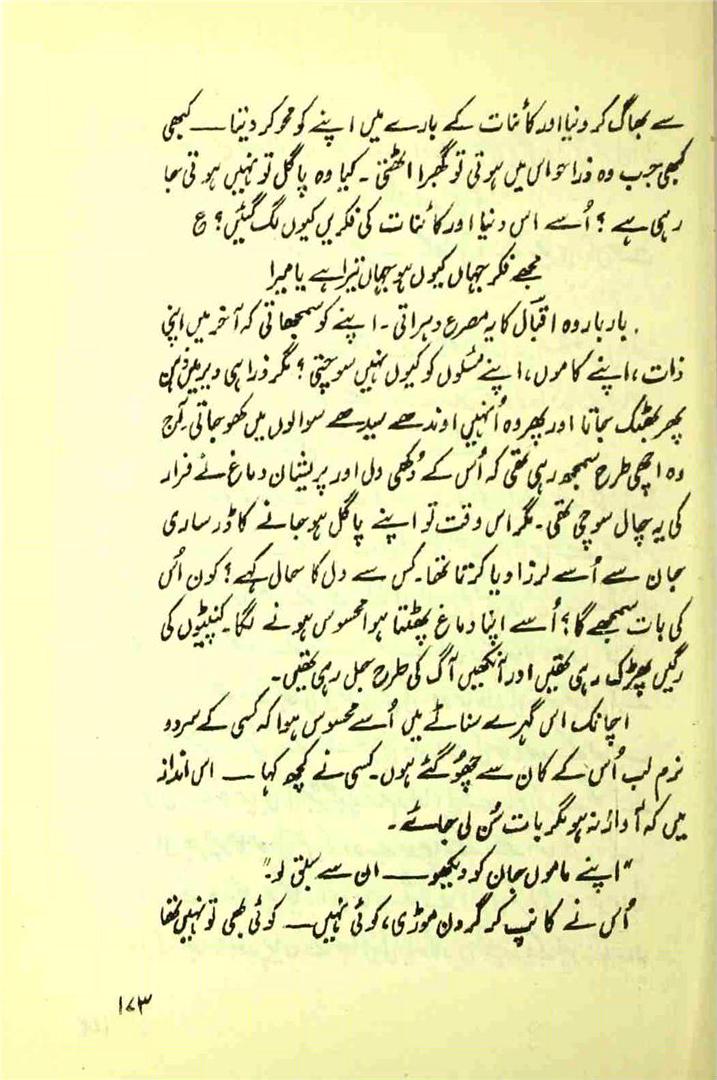 سے بھاگ کر دنیا اور کائنات کے بارے میں اپنے کو محو کر دینا — کبھی
کبھی جب وہ ذرا حواس میں ہوتی تو گھبرا اٹھتی۔ کیا وہ پاگل تو نہیں ہوتی جا
رہی ہے؟ اُسے اس دنیا اور کائنات کی فکریں کیوں لگ گئیں؟ ع
مجھے فکر جہاں کیوں ہو جہاں تیرا ہے یا میرا
بار بار وہ اقبالؔ کا یہ مصرع دہراتی۔ اپنے کو سمجھاتی کہ آخر میں اپنی
ذات، اپنے کاموں، اپنے مسئلوں کو کیوں نہیں سوچتی؟ مگر ذرا ہی دیر میں ذہن
پھر بھٹک جاتا اور پھر وہ اُنہیں اوندھے سیدھے سوالوں میں کھو جاتی۔ آج
وہ اچھی طرح سمجھ رہی تھی کہ اُس کے دُکھی دل اور پریشان دماغ نے فرار
کی یہ چال سوچی تھی۔ مگر اس وقت تو اپنے پاگل ہو جانے کا ڈر ساری
جان سے اُسے لرزا دیا کرتا تھا۔ کس سے دل کا حال کہے؟ کون اُس
کی بات سمجھے گا؟ اُسے اپنا دماغ پھٹتا ہوا محسوس ہونے لگا۔ کنپٹیوں کی
رگیں پھڑک رہی تھیں اور آنکھیں آگ کی طرح جل رہی تھیں۔
اچانک اس گہرے سناٹے میں اُسے محسوس ہوا کہ کسی کے سرد و
نرم لب اُس کے کان سے چھُو گئے ہوں۔ کسی نے کچھ کہا — اس انداز
میں کہ آواز نہ ہو مگر بات سُن لی جائے۔
"اپنے ماموں جان کو دیکھو — ان سے سبق لو۔"
اُس نے کانپ کر گردن موڑی، کوئی نہیں — کوئی بھی تو نہیں تھا
۱۷۳